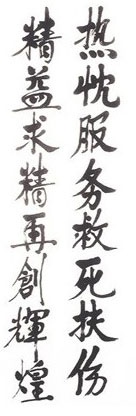 热忱服务救死扶伤
精益求精再創輝煌